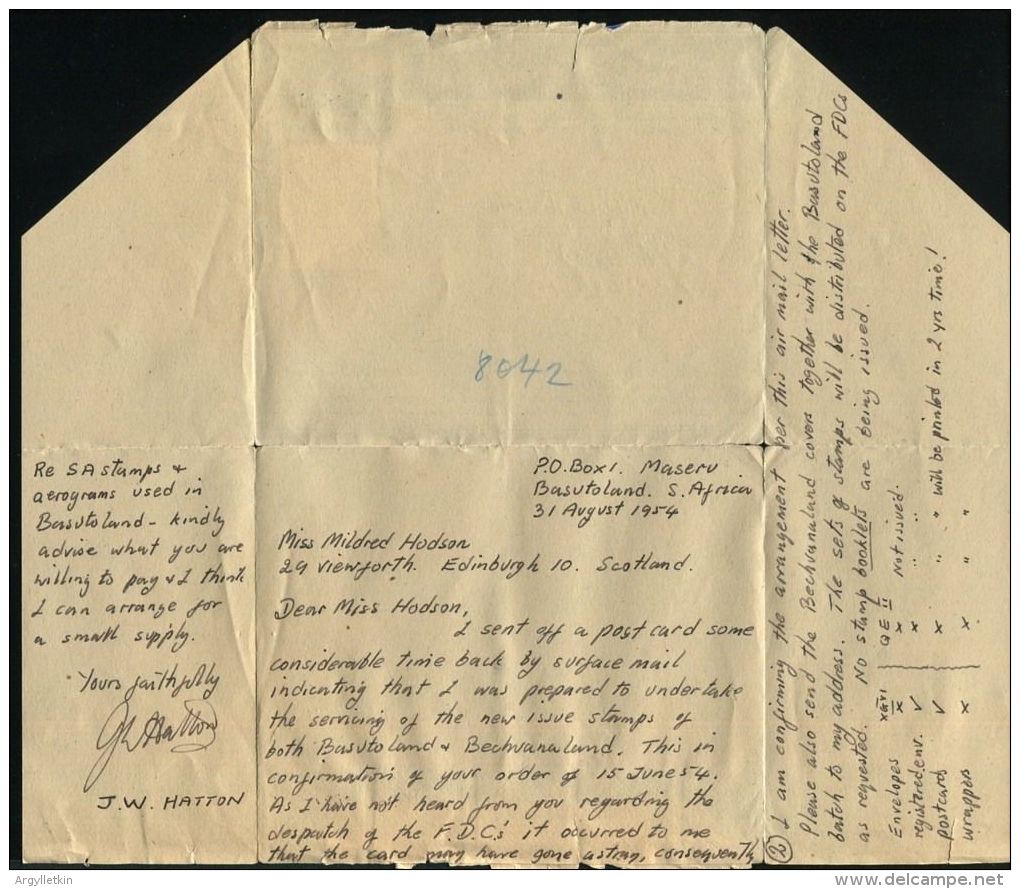 8042
P.O.Box 1. Maseru
Basutoland. S. Africa
31 August 1954
Miss Mildred Hodson
29 Viewforth. Edinburgh 10. Scotland.
Dear Miss Hodson,
I sent off a post card some
considerable time back by surface mail
indicating that I was prepared to undertake
the servicing of the new issue stamps of
both Basutoland & Bechuanaland. This in
confirmation of your order of 15 June 54.
As I have not heard from you regarding the
despatch of the F.D.C's it occurred to me
that the card may have gone astray, consequently
(2) I am confirming the arrangement per this air mail letter.
Please also send the Bechuanaland covers together with the Basutoland
batch to my address. The sets of stamps will be distributed on the FDCs
as requested. No stamp booklets are being issued.
QE II
Envelopes x x Not issued.
registered env. ✓ x " "
postcards ✓ x " " will be printed in 2 yrs time!
wrappers x x " "
Re SA stamps &
aerograms used in
Basutoland - kindly
advise what you are
willing to pay & I think
I can arrange for
a small supply.
Yours faithfully
JW Hatton
J.W. HATTON
Argylletkin
delcampe.net